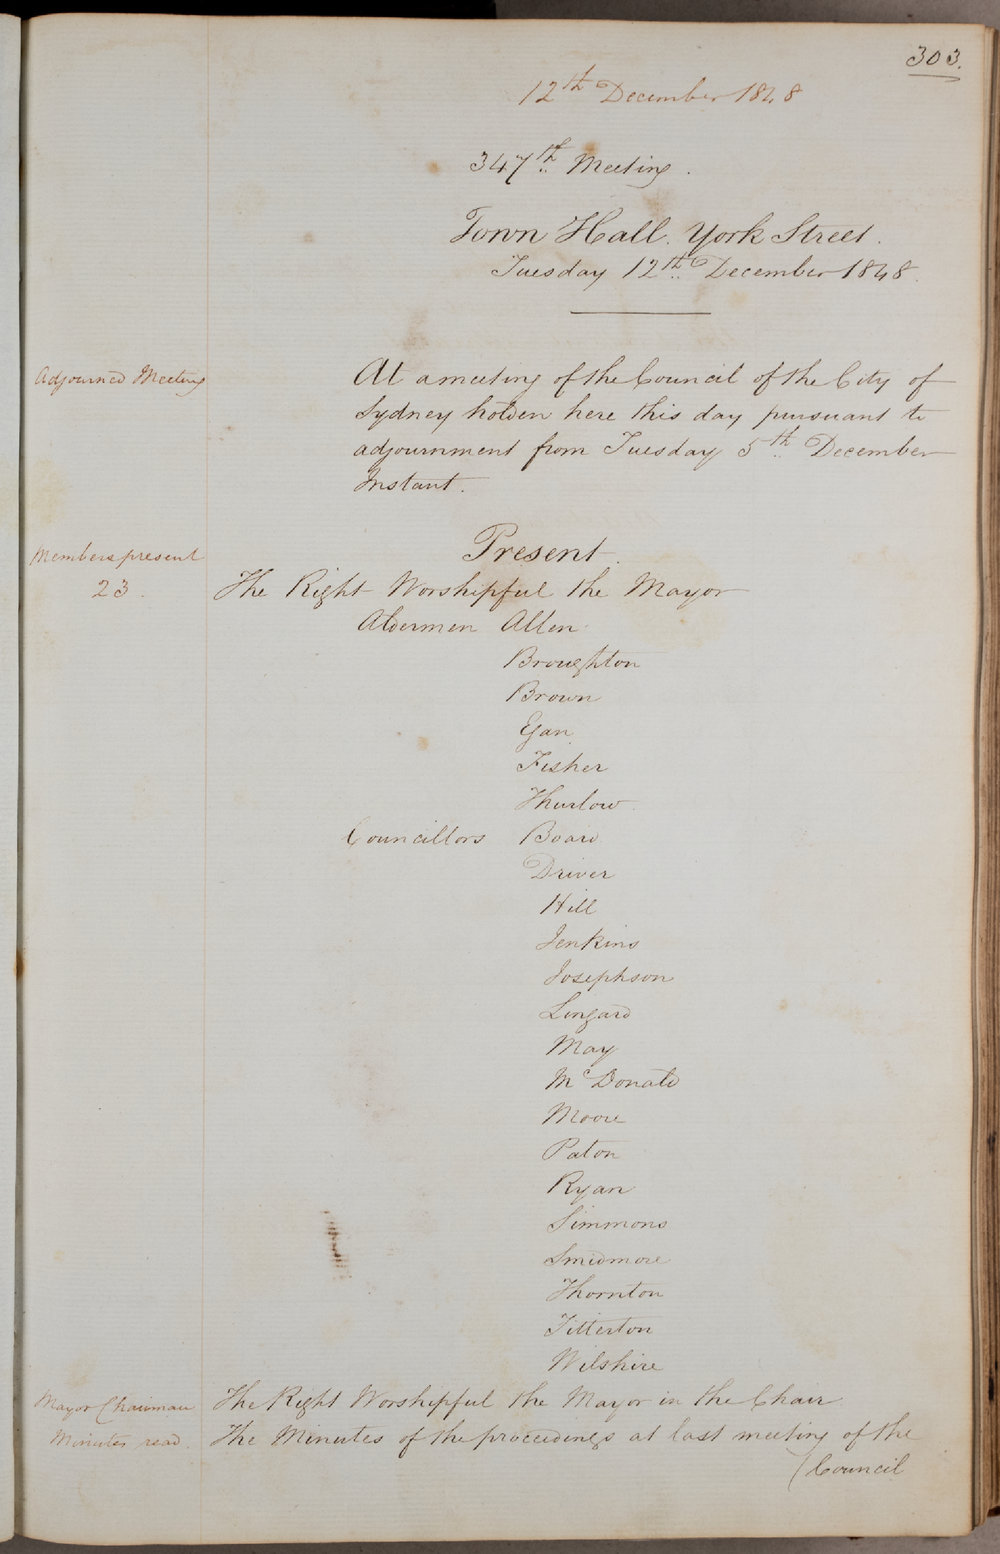 303.
12th December 1848
347th Meeting.
Town Hall. York Street.
Tuesday 12th December 1848.
Adjourned Meeting
At a meeting of the Council of the City of
Sydney holden here this day pursuant to
adjournment from Tuesday 5th December
Instant.
Members present
23.
Present.
The Right Worshipful the Mayor
Aldermen Allen
Broughton
Brown
Egan
Fisher
Thurlow.
Councillors Board
Driver
Hill
Jenkins
Josephson
Lingard
May
McDonald
Moore
Paton
Ryan
Simmons
Smidmore
Thornton
Titterton
Wilshire
Mayor Chairman
The Right Worshipful the Mayor in the Chair.
Minutes read.
The Minutes of the proceedings at last meeting of the
(Council